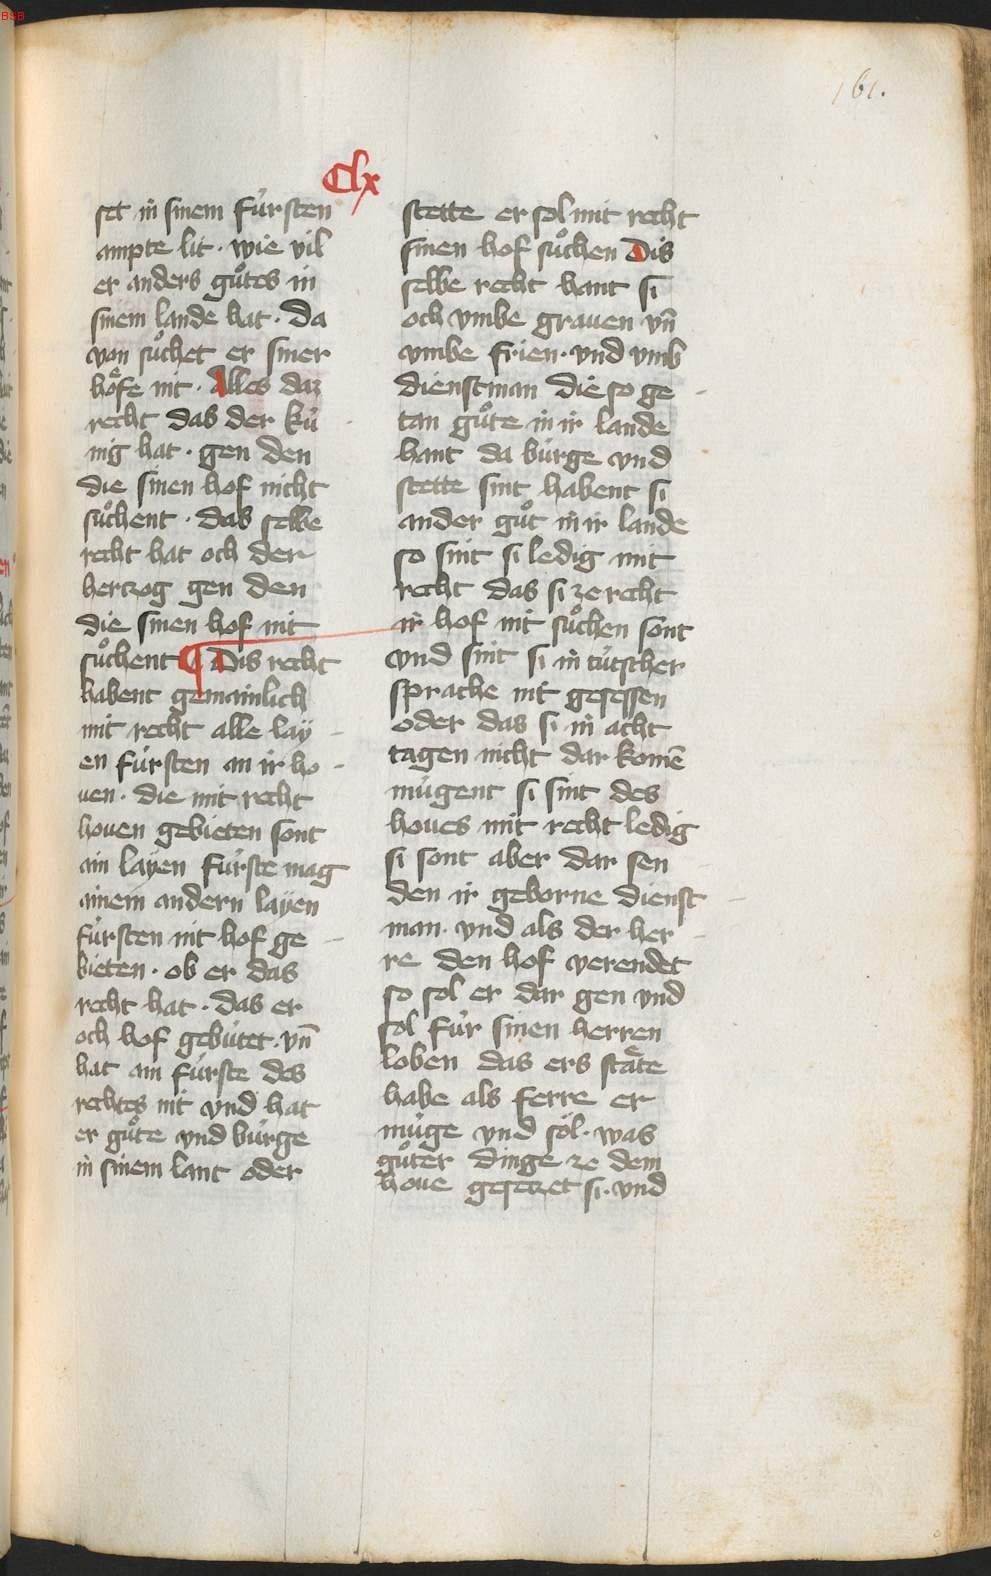 161.
Clx
set in sinem fu̍rsten
ampte lit · wie vil
er anders gůtes in
sinem lande hat · da
van sůchet er siner
hoͤfe nit · Alles daz
recht das der ku̍
nig hat · gen den
die sinen hof nicht
sůchent · das selbe
recht hat och der
hertzog gen den
die sinen hof nit
sůchent ¶ Dis recht
habent gemainlich
mit recht alle laÿ
en fu̍rsten an ir ho
uen · die mit recht
houen gebieten sont
ain laÿen fu̍rste mag
ainem andern laÿen
fu̍rsten nit hof ge
bieten · ob er das
recht hat · das er
och hof gebu̍tet · vn̄
hat ain fu̍rste des
rechtes nit vnd hat
er gůte vnd bu̍rge
in sinem lant oder
stette er sol mit recht
sinen hof sůchen Dis
selbe recht hant si
och vmbe grauen vn̄
vmbe frien · vnd vmb
dienstman die so ge
tan gůte in ir lande
hant da bu̍rge vnd
stette sint habent si
ander gůt in ir lande
so sint si ledig mit
recht das si ze recht
ir hof nit sůchen sont
vnd sint si in tu̍tscher
sprache nit gesessen
oder das si in acht
tagen nicht dar komē
mu̍gent si sint des
houes mit recht ledig
si sont aber dar sen
den ir geborne dienst
man · vnd als der her
re den hof verendet
so sol er dar gen vnd
sol fu̍r sinen herren
loben das ers staͤte
habe als ferre er
mu̍ge vnd sol · was
gůter dinge ze dem
houe gesetzet si · vnd
BSB